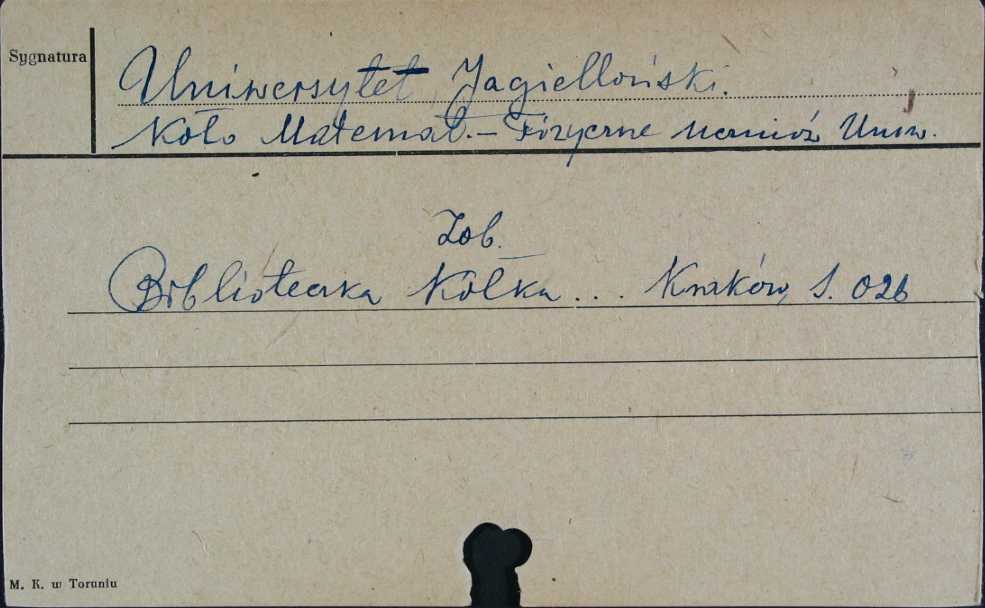 Sygnatura
Uniwersytet Jagielloński.
Koło Matemat. – Fizyczne uczniów Uniw.
Zob.
Biblioteczka Kółka ... Kraków, S. 026
M. K. w Toruniu